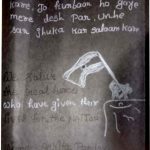 kare, Jo kurbaan ho gaye
mere desh par, unhe
sar jhuka kar salaam kare
We salute
the great heroes
who have given their
lives for the nation